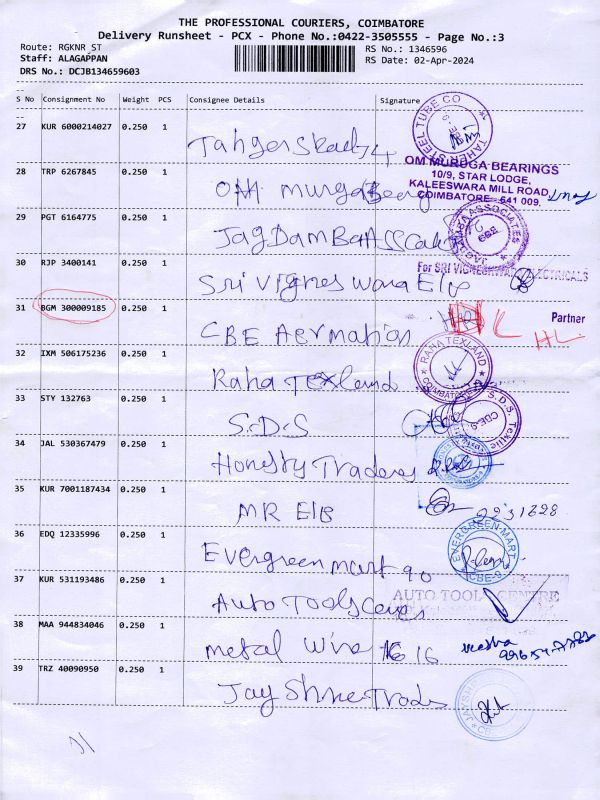 THE PROFESSIONAL COURIERS, COIMBATORE
Delivery Runsheet - PCX - Phone No.:0422-3505555 - Page No.:3
Route: RGKNR_ST
RS No.: 1346596
Staff: ALAGAPPAN
RS Date: 02-Apr-2024
DRS No.: DCJB134659603
S No Consignment No Weight PCS Consignee Details Signature
27 KUR 6000214027 0.250 1
TAHER STEEL TUBE CO
28 TRP 6267845 0.250 1 OM
OM MURUGA BEARINGS
10/9, STAR LODGE,
KALEESWARA MILL ROAD,
COIMBATORE - 641 009.
29 PGT 6164775 0.250 1 JagDamBa
JAGDAMBA ASSOCIATES
30 RJP 3400141 0.250 1 Sri Vigneswara Elb
For SRI VIGNESHWARA ELECTRICALS
Partner
31 BGM 300009185 0.250 1 CBE Aermation
HL
32 IXM 506175236 0.250 1 Raha Texland
RAHA TEXLAND COIMBATORE
33 STY 132763 0.250 1 S.D.S
S.D.S. Textile CBE-9
34 JAL 530367479 0.250 1 Honesty Traderes
35 KUR 7001187434 0.250 1 MR Elb
36 EDQ 12335996 0.250 1 Evergreen mart 90
EVERGREEN-MART CBE-9
37 KUR 531193486 0.250 1 Auto Tools
AUTO TOOL CENTRE
38 MAA 944834046 0.250 1 metal Wire 16
39 TRZ 40090950 0.250 1 Jay Shree Trads